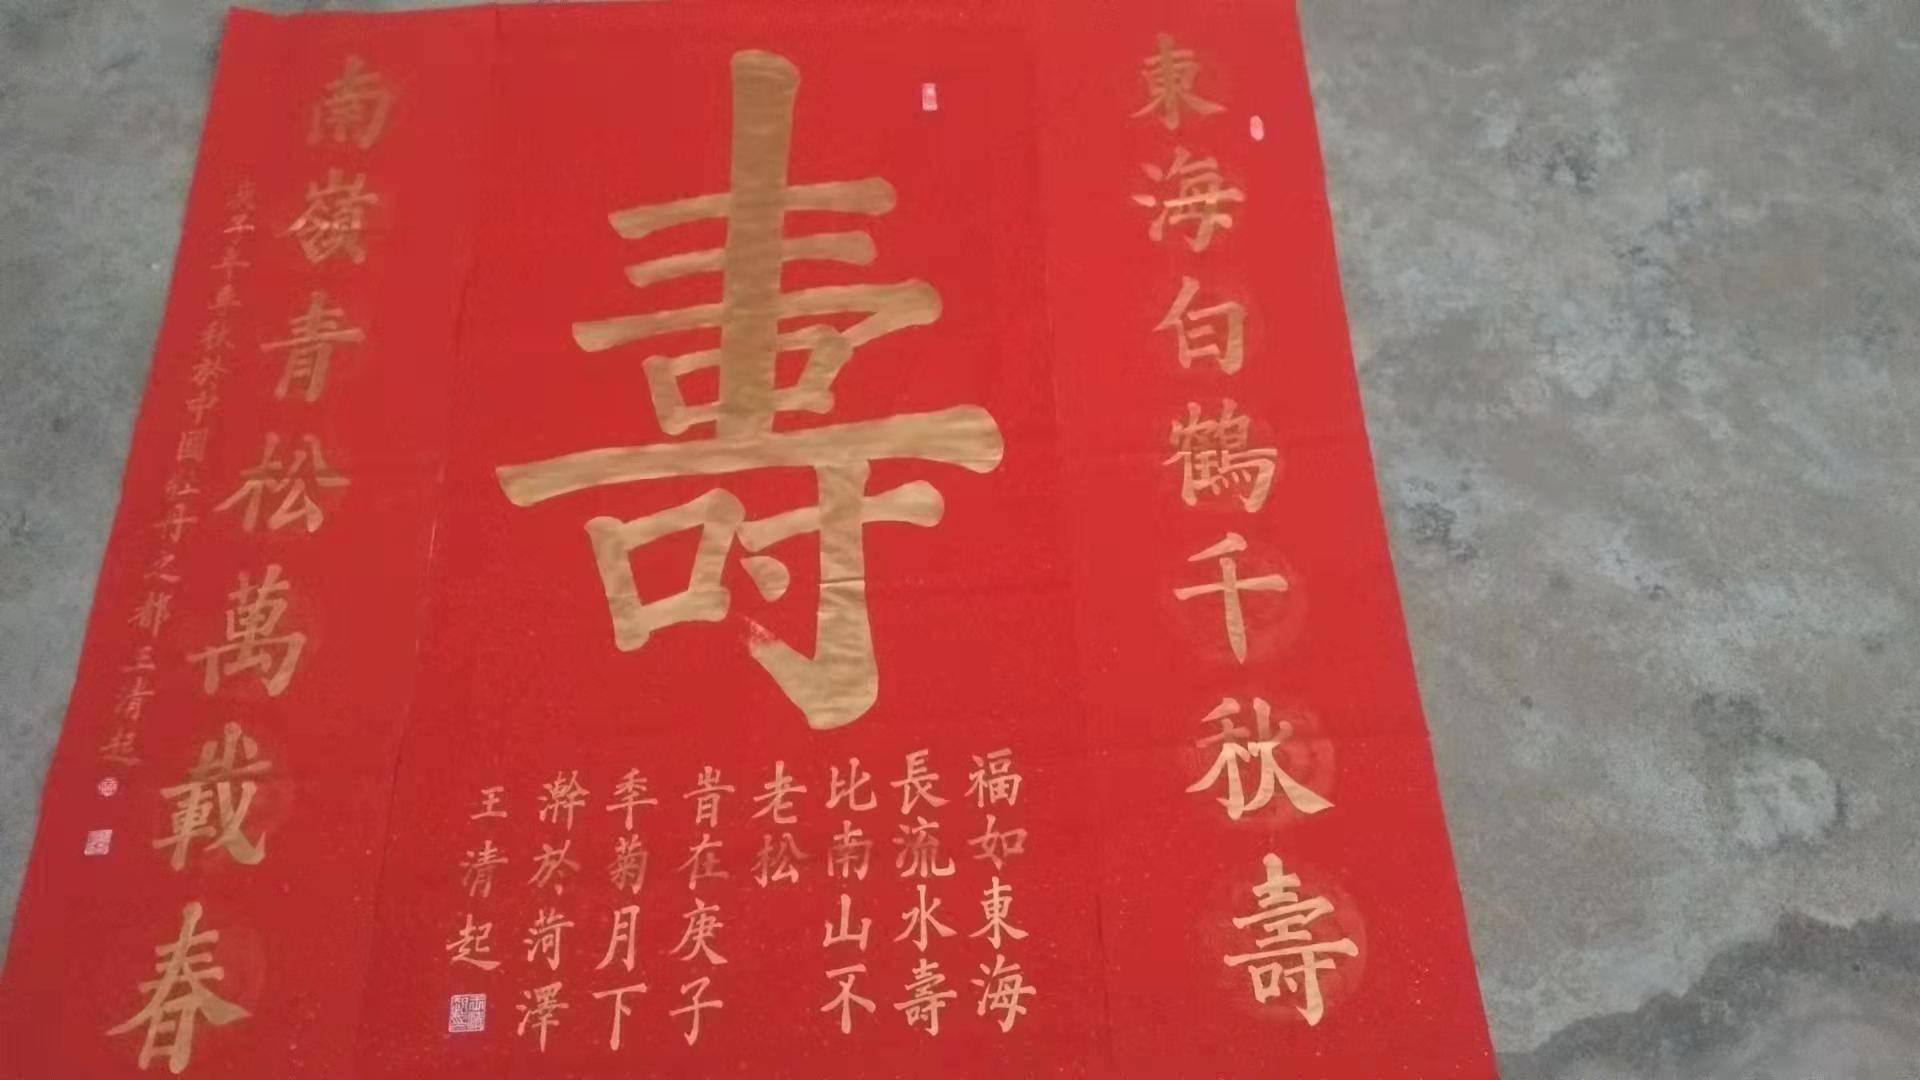 東海白鶴千秋壽
壽
福如東海
長流水壽
比南山不
老松
旹在庚子
秊菊月下
澣於菏澤
王清起
南嶺青松萬載春
庚子年季秋於中國牡丹之都王清起